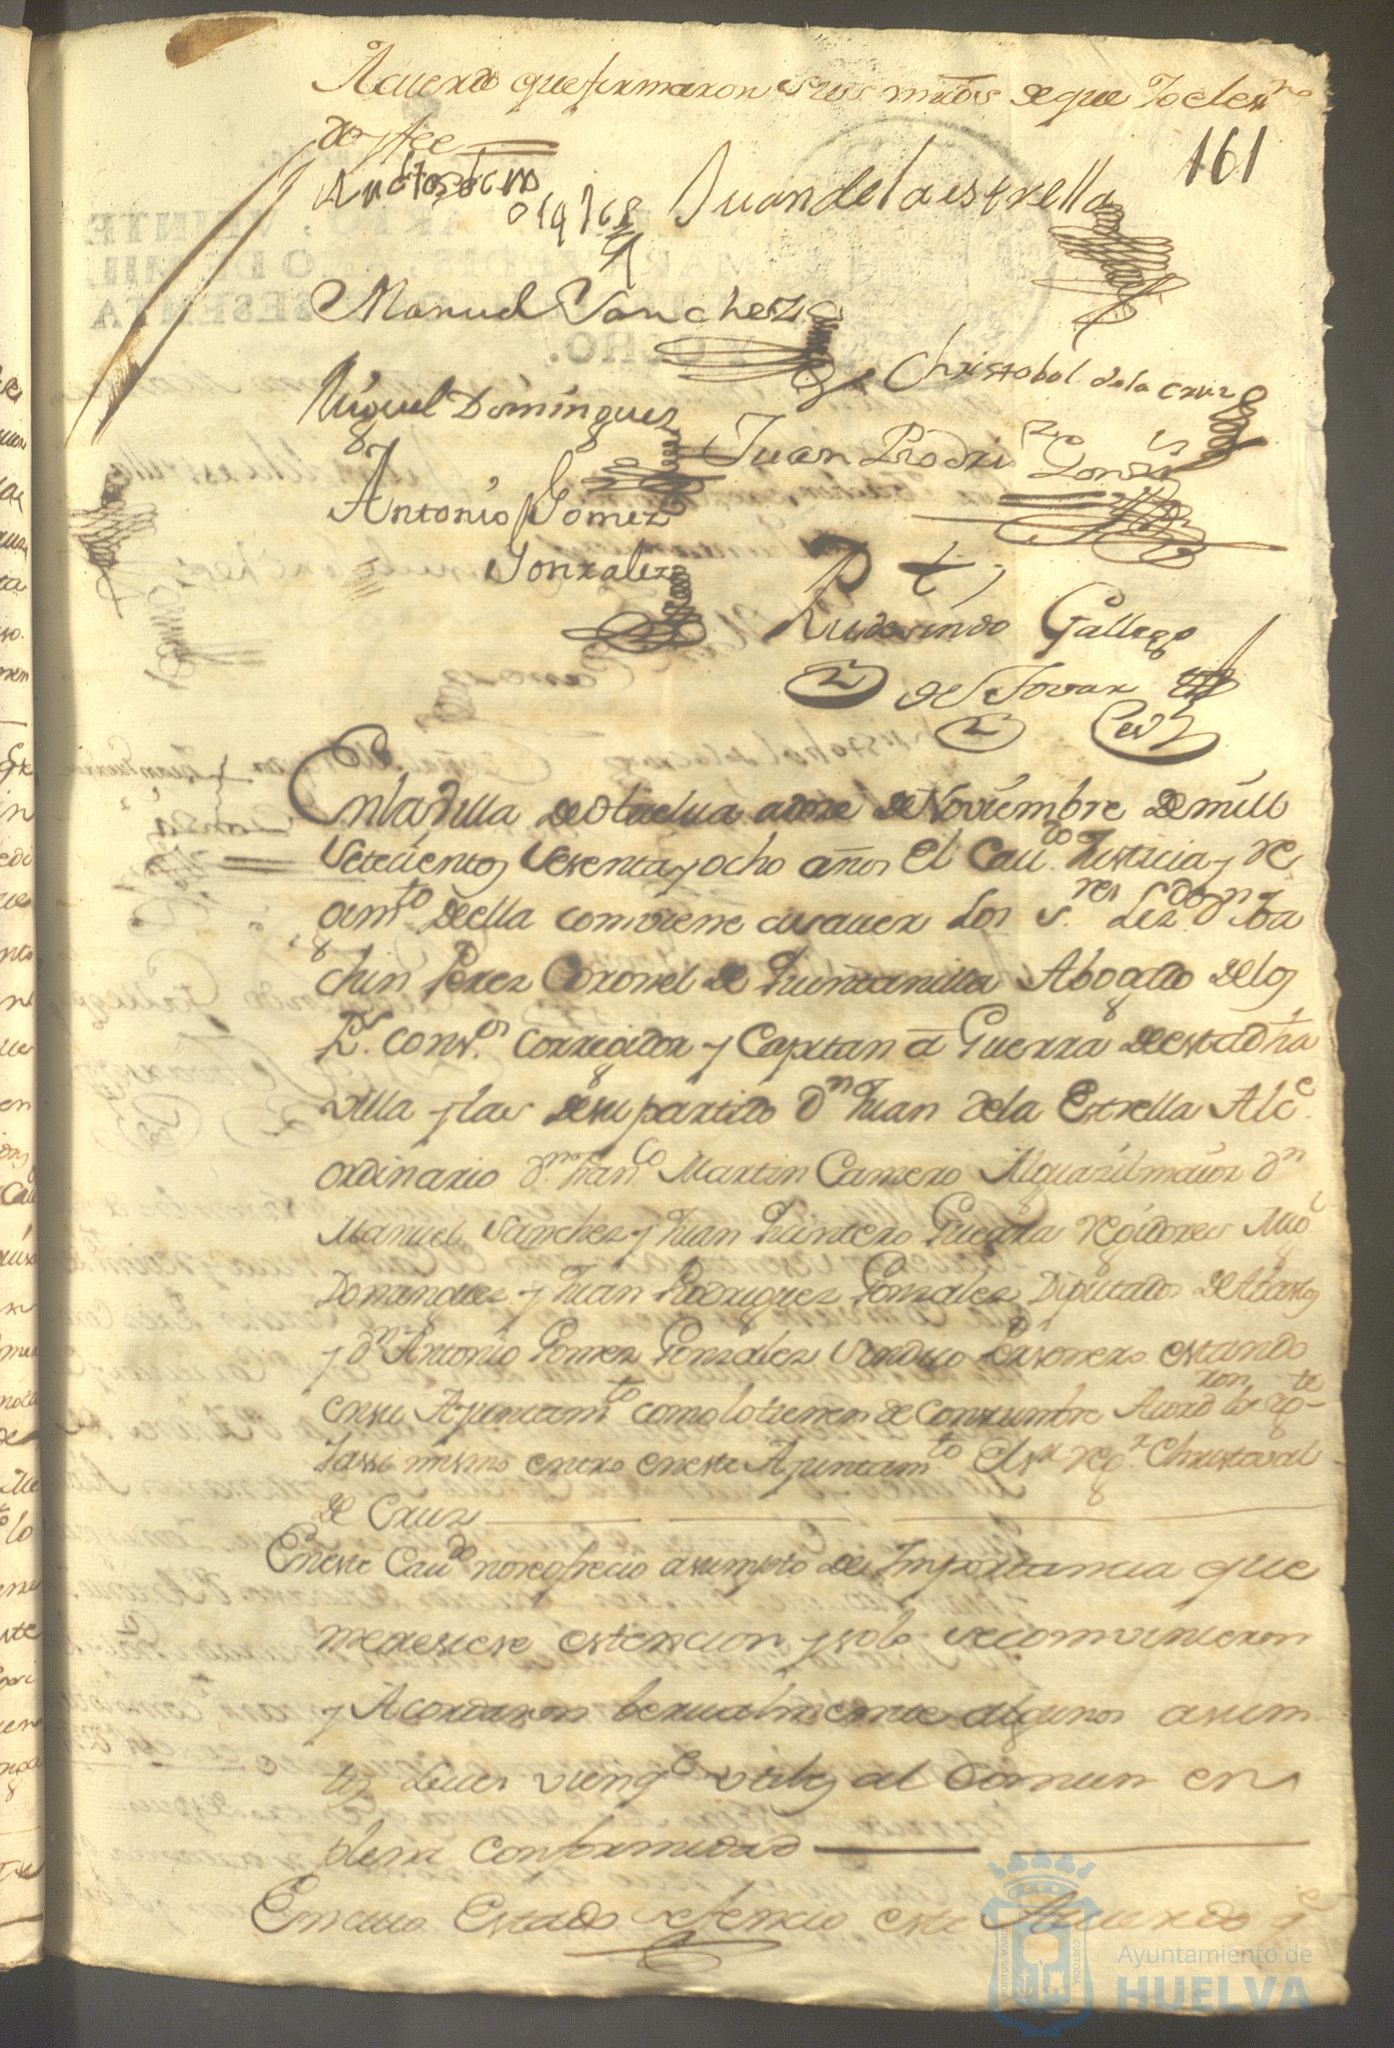 Acuerdo que firmaron sus mrds de que Yo el esno
doy fee
161
Juan de la estrella
Manuel Sanchez
Christobal de la cruz
Miguel Dominguez
Juan Rodriz Gonzs
Antonio Gomez
Gonzalez
Rudesindo Gallego
de Tovar
Enla Villa de Huelva adoze de Noviembre de mill
Setecientos Sesenta y ocho años el Caudo Justicia y Re
ximto de ella combiene asauer Los Sres Lizdo Dn Joa
chin Perez Coronel de Quintanilla Abogado delos
Rs. Cons.os Corregidor y Capitan a Guerra de esta dha
Villa y las de su partido Dn Juan dela Estrella Alce
ordinario Dn Franco Martin Camero Alguazil maior Dn
Manuel Sanchez y Juan Quintero Guerra regidores Migl
Dominguez y Juan Rodriguez Gonzalez Diputados de Abastos
y Dn Antonio Gomez Gonzalez Sindico Personero estando
en su Ayuntamto como lo tienen de Costumbre Acordaron lo sigte
y assi mismo entro en este Ayuntamto el sr regr Christoval
de Cruz
En este Caudo no se ofrecio asumpto de Importancia que
meresiese estencion y solo se combinieron
y Acordaron berualmente algunos asum
tos utiles al Comun en
plena conformidad
En cuio Estado se fenecio este Acuerdo qe
Ayuntamiento de
HUELVA